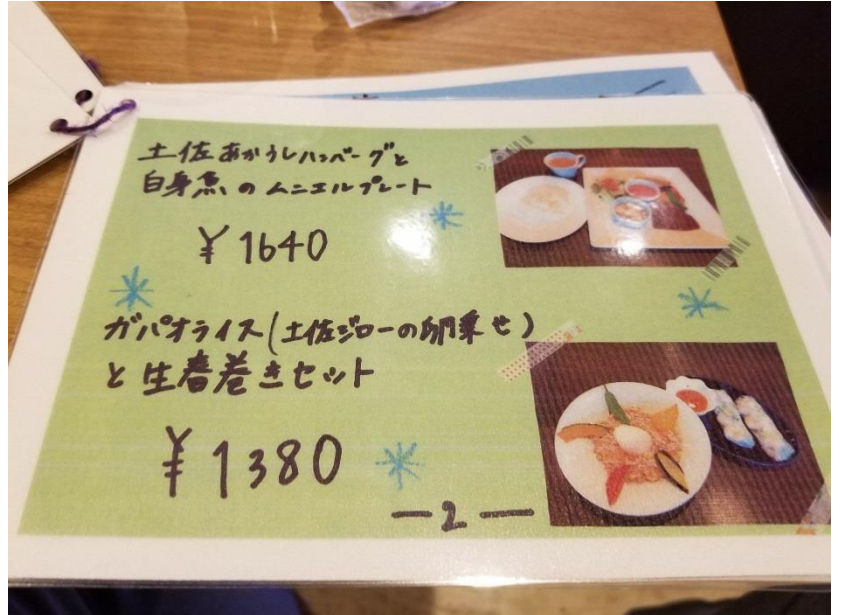 土佐あかうしハンバーグと
白身魚のムニエルプレート
¥1640
ガパオライス(土佐ジローの卵乗せ)
と生春巻きセット
¥1380
—2—